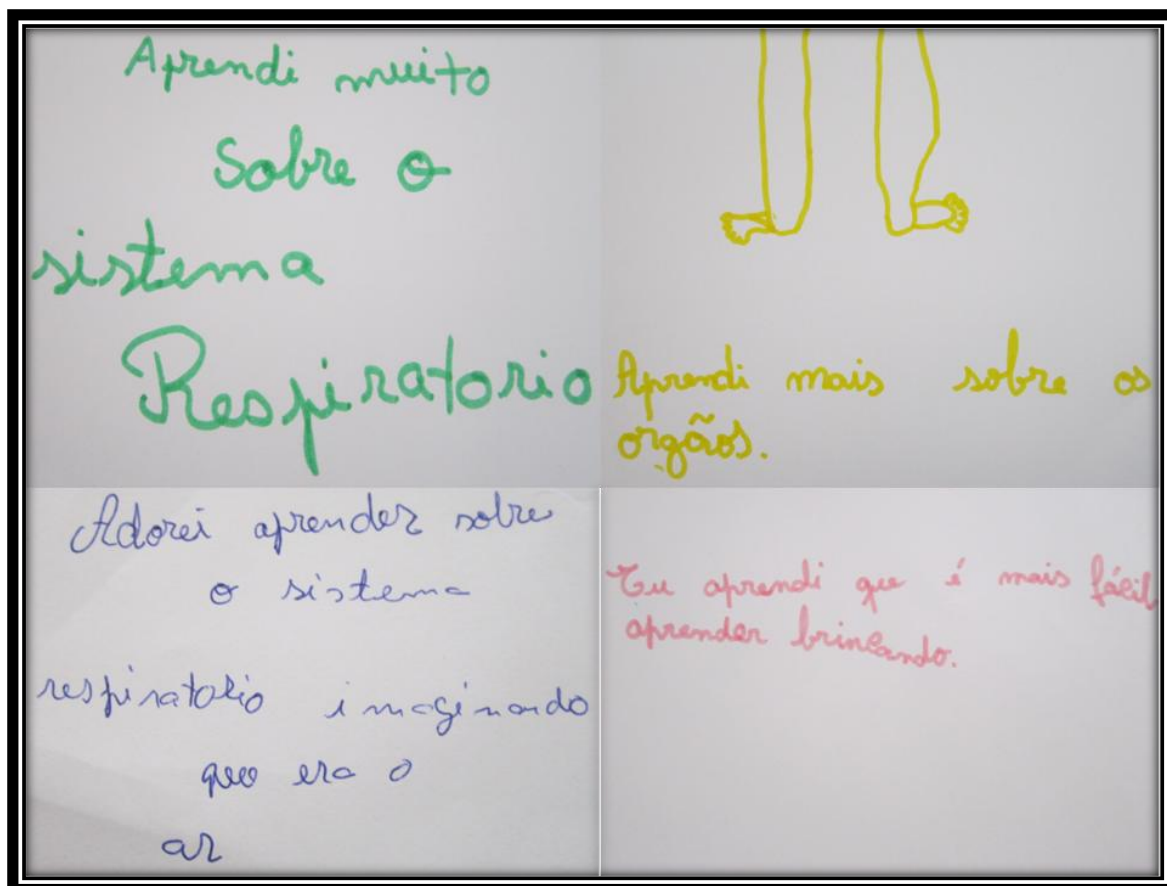 Aprendi muito
Sobre o
sistema
Respiratorio
Aprendi mais sobre os
orgãos.
Adorei aprender sobre
o sistema
respiratorio imaginando
que era o
ar
Eu aprendi que é mais fácil
aprender brincando.